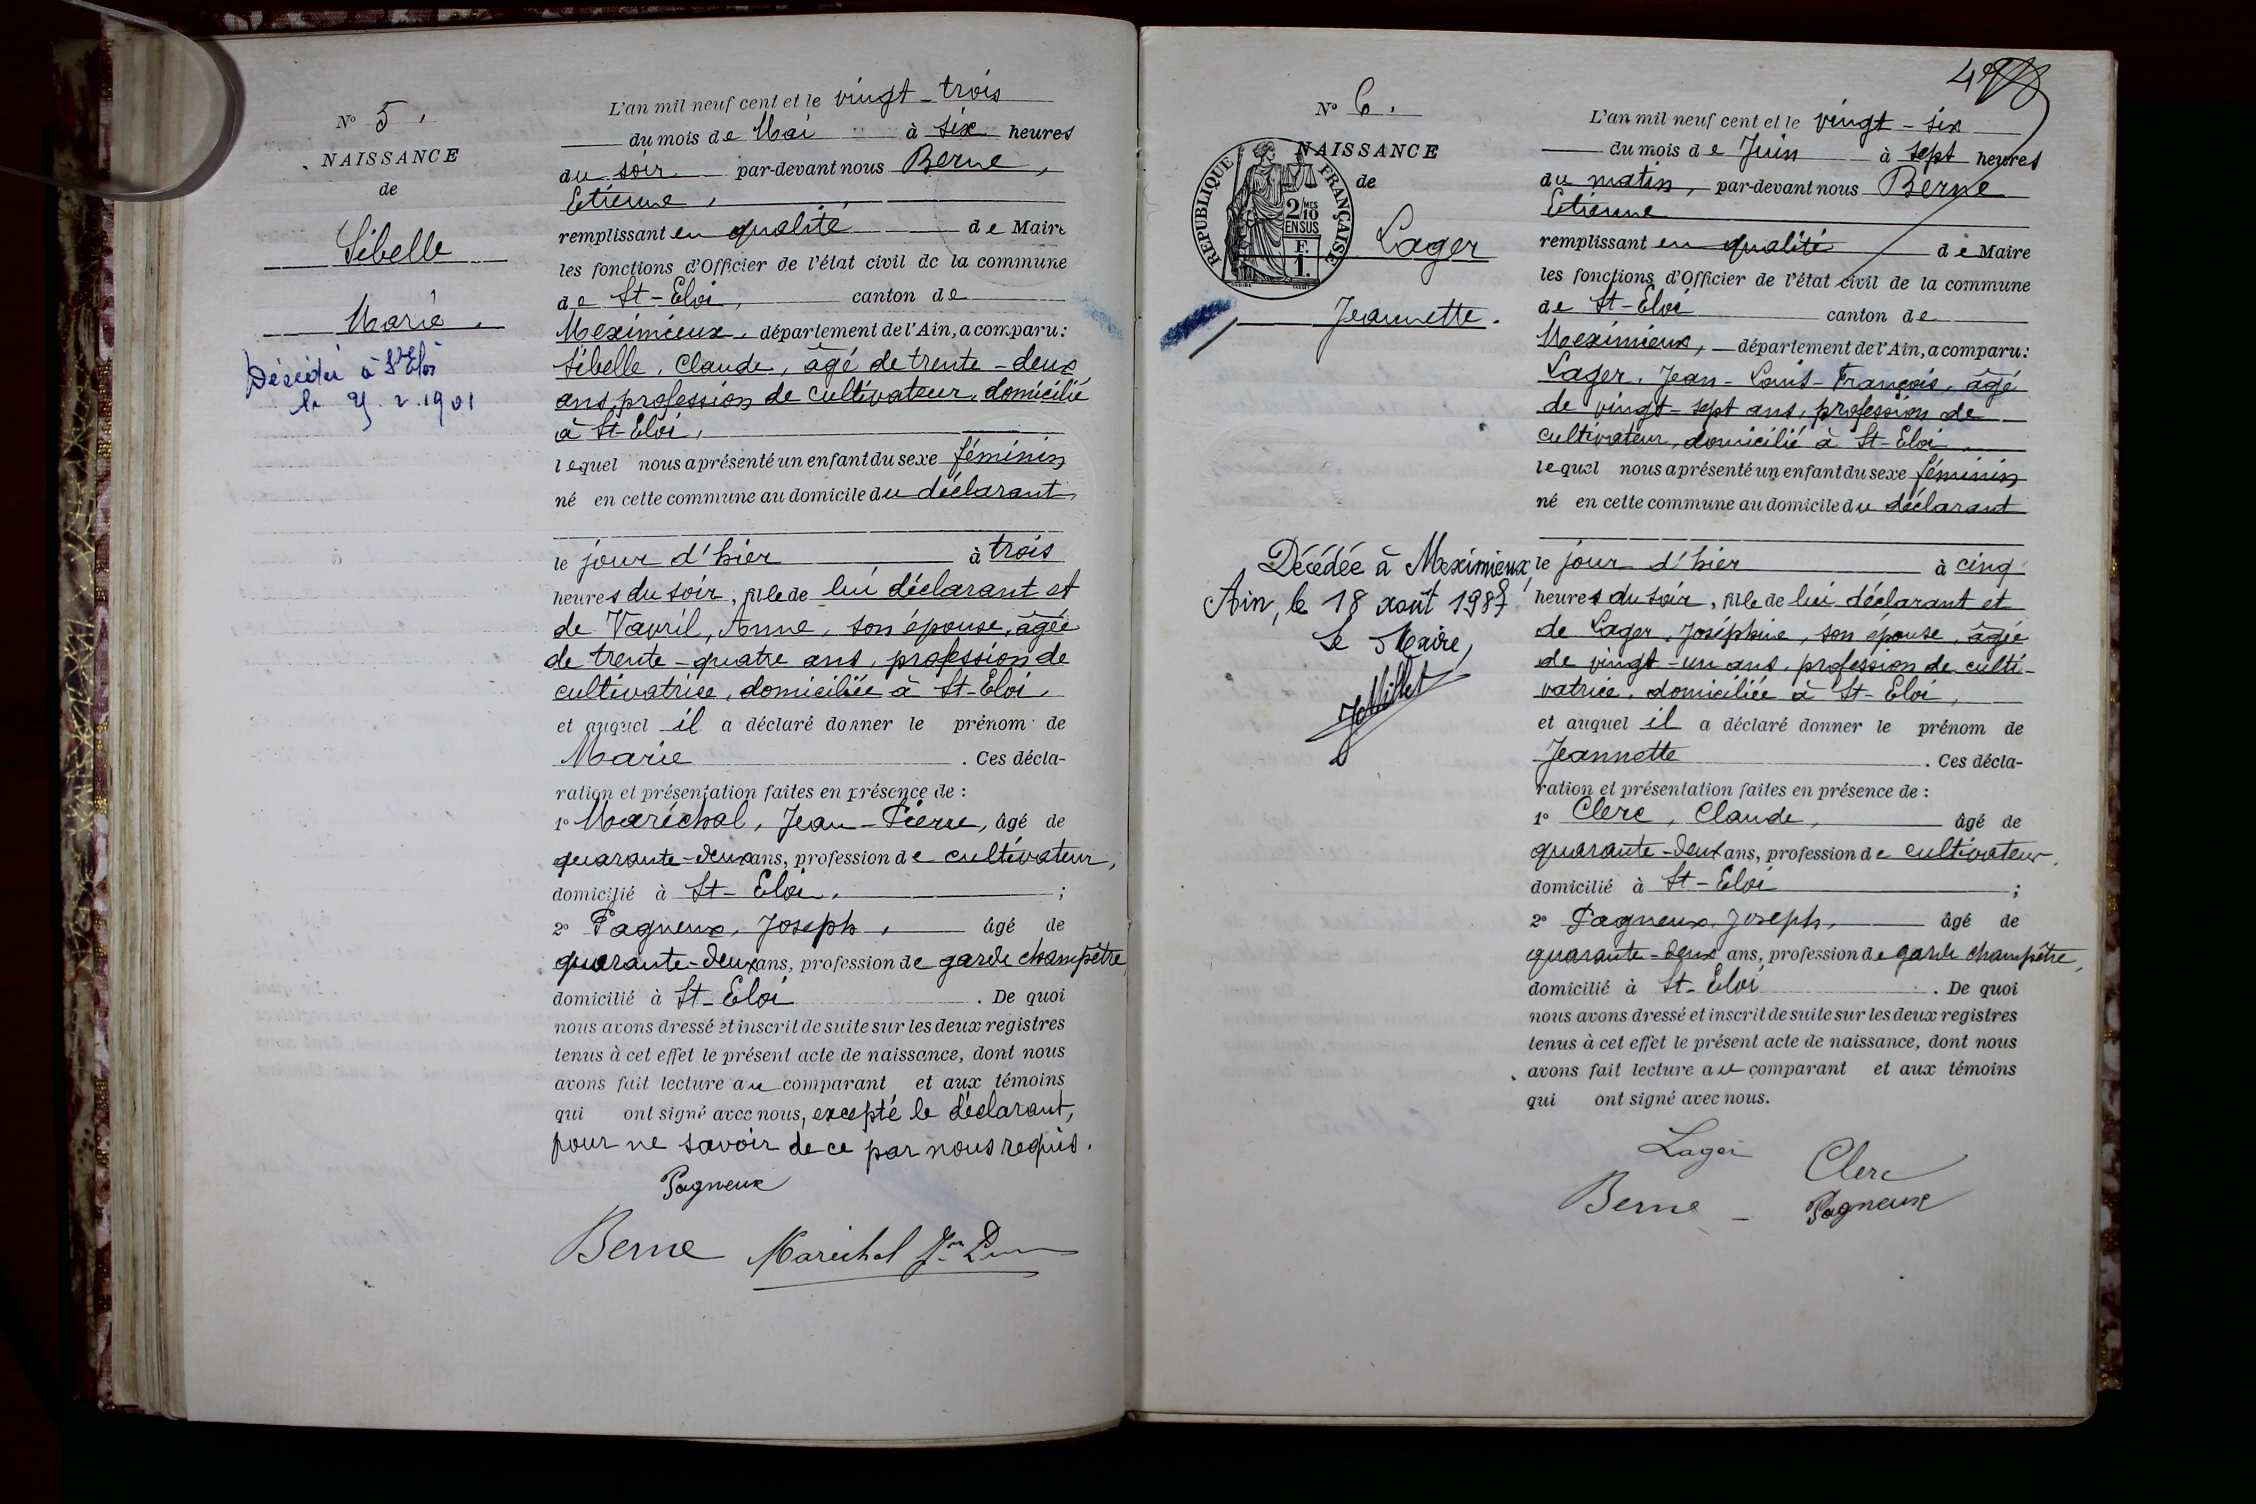 N° 5.
NAISSANCE
de
Sibelle
Marie.
Décédée à St Eloi
le 2.1901
L'an mil neuf cent et le vingt-trois
du mois de Mai à six heures
du soir par-devant nous Berne,
Etienne,
remplissant en qualité de Maire
les fonctions d'Officier de l'état civil de la commune
de St-Eloi, canton de
Meximieux, département de l'Ain, a comparu:
Sibelle, Claude, âgé de trente-deux
ans, profession de cultivateur, domicilié
à St-Eloi,
lequel nous a présenté un enfant du sexe féminin
né en cette commune au domicile du déclarant
le jour d'hier à trois
heures du soir, fille de lui déclarant et
de Vavril, Anne, son épouse, âgée
de trente-quatre ans, profession de
cultivatrice, domiciliée à St-Eloi,
et auquel il a déclaré donner le prénom de
Marie. Ces décla-
ration et présentation faites en présence de:
1° Maréchal, Jean-Pierre, âgé de
quarante-deux ans, profession de cultivateur,
domicilié à St-Eloi,;
2° Pagneux, Joseph, âgé de
quarante-deux ans, profession de garde champêtre
domicilié à St-Eloi. De quoi
nous avons dressé et inscrit de suite sur les deux registres
tenus à cet effet le présent acte de naissance, dont nous
avons fait lecture au comparant et aux témoins
qui ont signé avec nous, excepté le déclarant,
pour ne savoir de ce par nous requis.
Pagneux
Berne Maréchal Jn
4
N° 6.
NAISSANCE
de
REPUBLIQUE FRANÇAISE
2/10 MES
EN SUS
F.
1.
Lager
Jeannette.
Décédée à Meximieux,
Ain, le 18 août 1987
Le Maire,
JMillet
L'an mil neuf cent et le vingt-six
du mois de Juin à sept heures
du matin, par-devant nous Berne
Etienne
remplissant en qualité de Maire
les fonctions d'Officier de l'état civil de la commune
de St-Eloi canton de
Meximieux, département de l'Ain, a comparu:
Lager, Jean-Louis-François, âgé
de vingt-sept ans, profession de
cultivateur, domicilié à St-Eloi,
lequel nous a présenté un enfant du sexe féminin
né en cette commune au domicile du déclarant
le jour d'hier à cinq
heures du soir, fille de lui déclarant et
de Lager, Joséphine, son épouse, âgée
de vingt-un ans, profession de culti-
vatrice, domiciliée à St-Eloi,
et auquel il a déclaré donner le prénom de
Jeannette. Ces décla-
ration et présentation faites en présence de:
1° Clerc, Claude, âgé de
quarante-deux ans, profession de cultivateur,
domicilié à St-Eloi;
2° Pagneux, Joseph, âgé de
quarante-deux ans, profession de garde champêtre,
domicilié à St-Eloi. De quoi
nous avons dressé et inscrit de suite sur les deux registres
tenus à cet effet le présent acte de naissance, dont nous
avons fait lecture au comparant et aux témoins
qui ont signé avec nous.
Lager Clerc
Berne - Pagneux